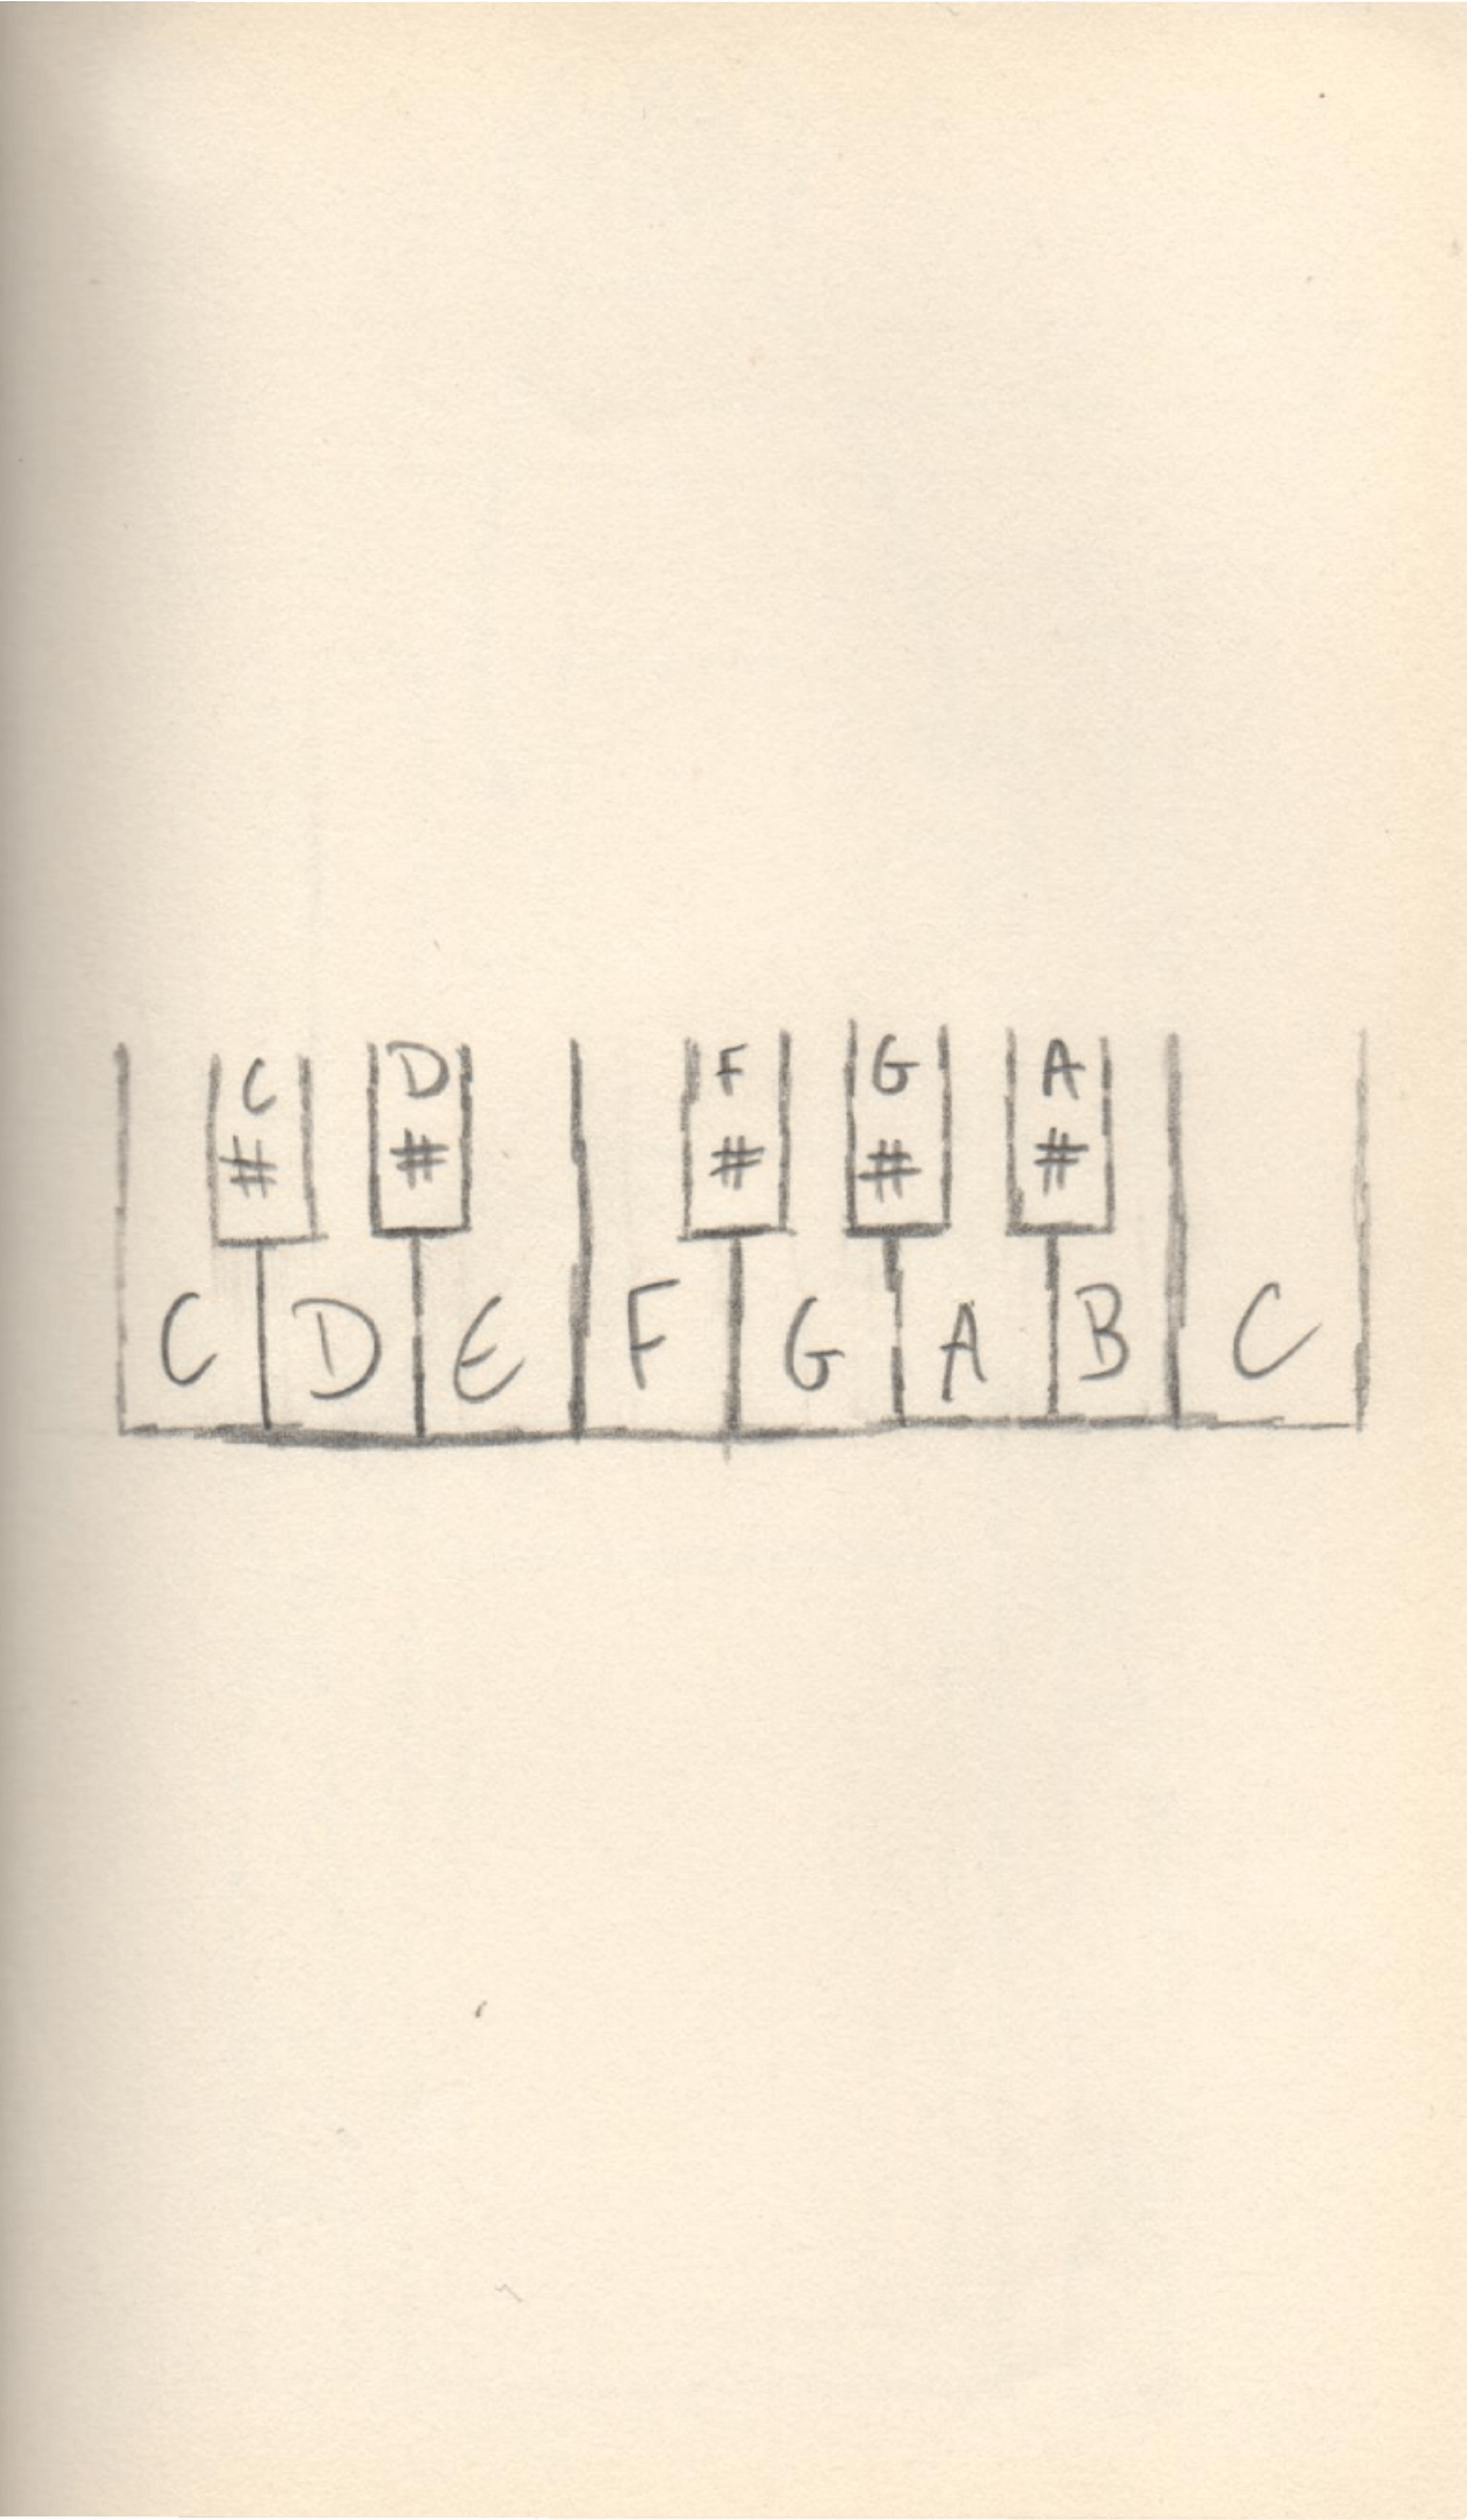 C D F G A
# # # # #
C D E F G A B C